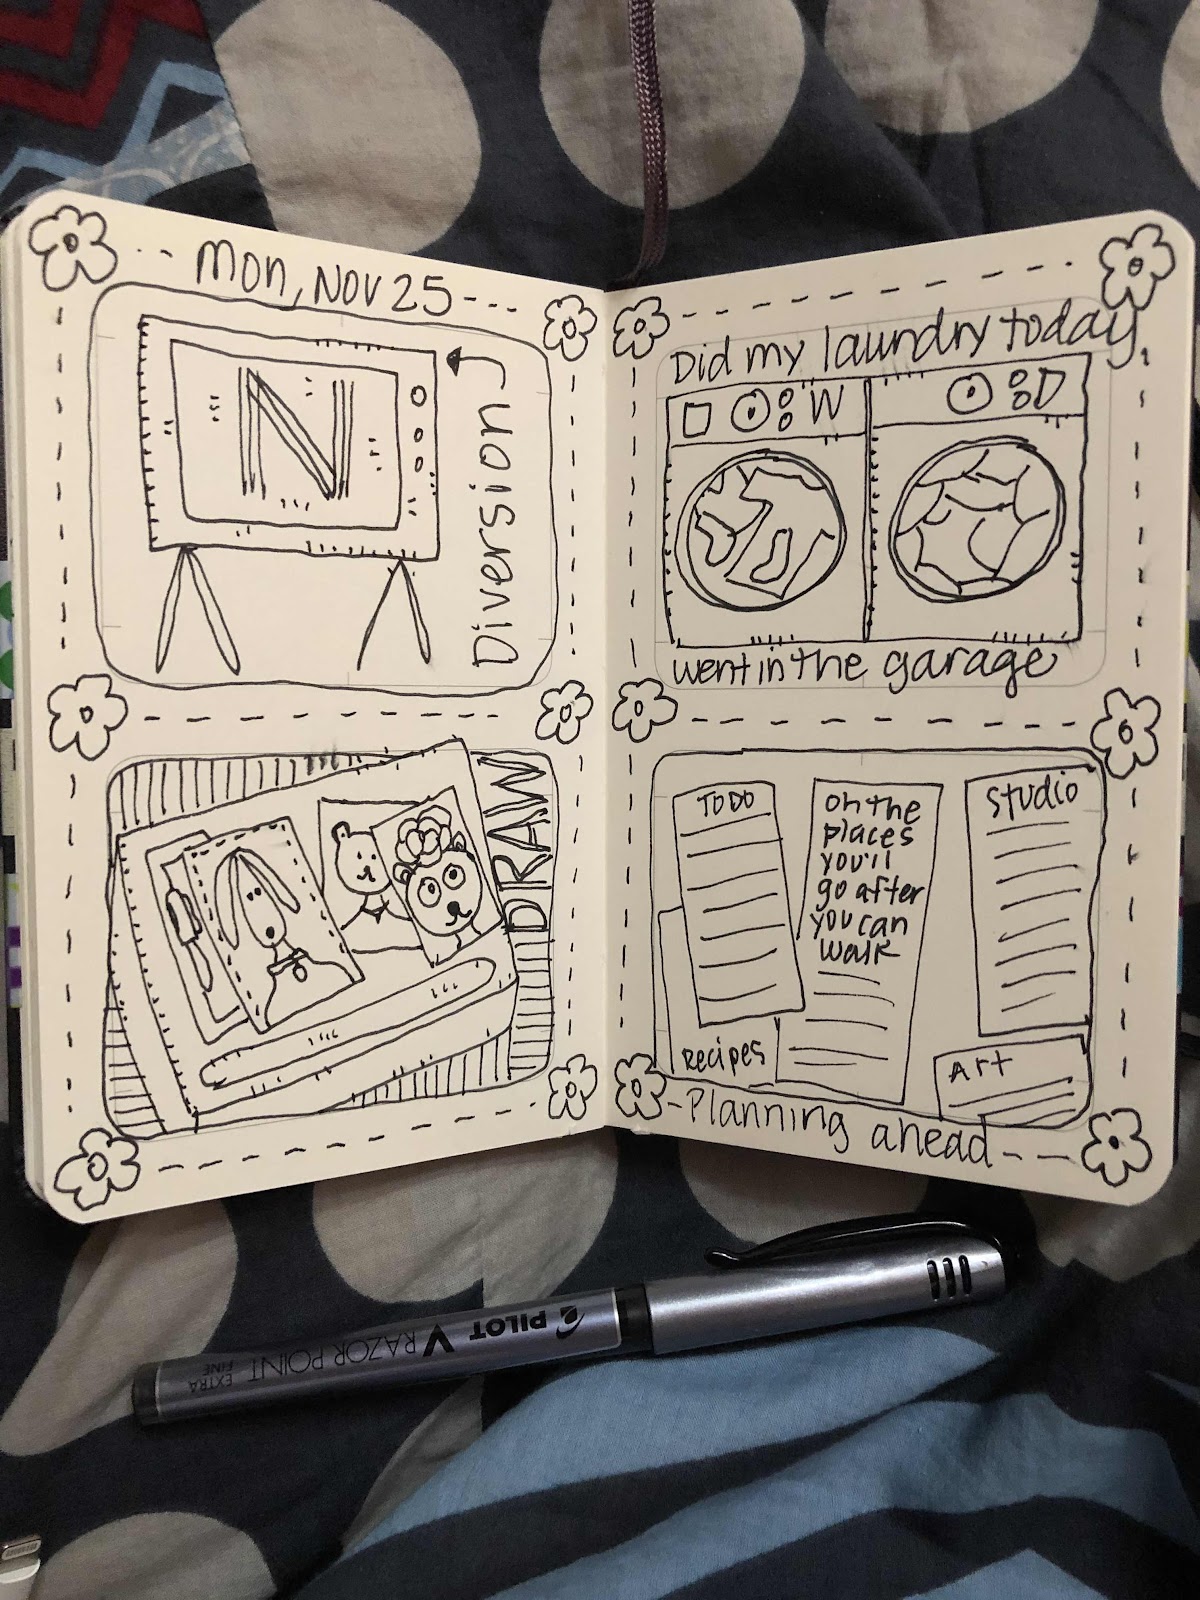 Mon, Nov 25
N
Diversion
DRAW
Did my laundry today
W
D
went in the garage
TODO
Recipes
oh the
places
you'll
go after
you can
walk
Studio
Art
Planning ahead
PILOT
V RAZOR POINT
EXTRA
FINE